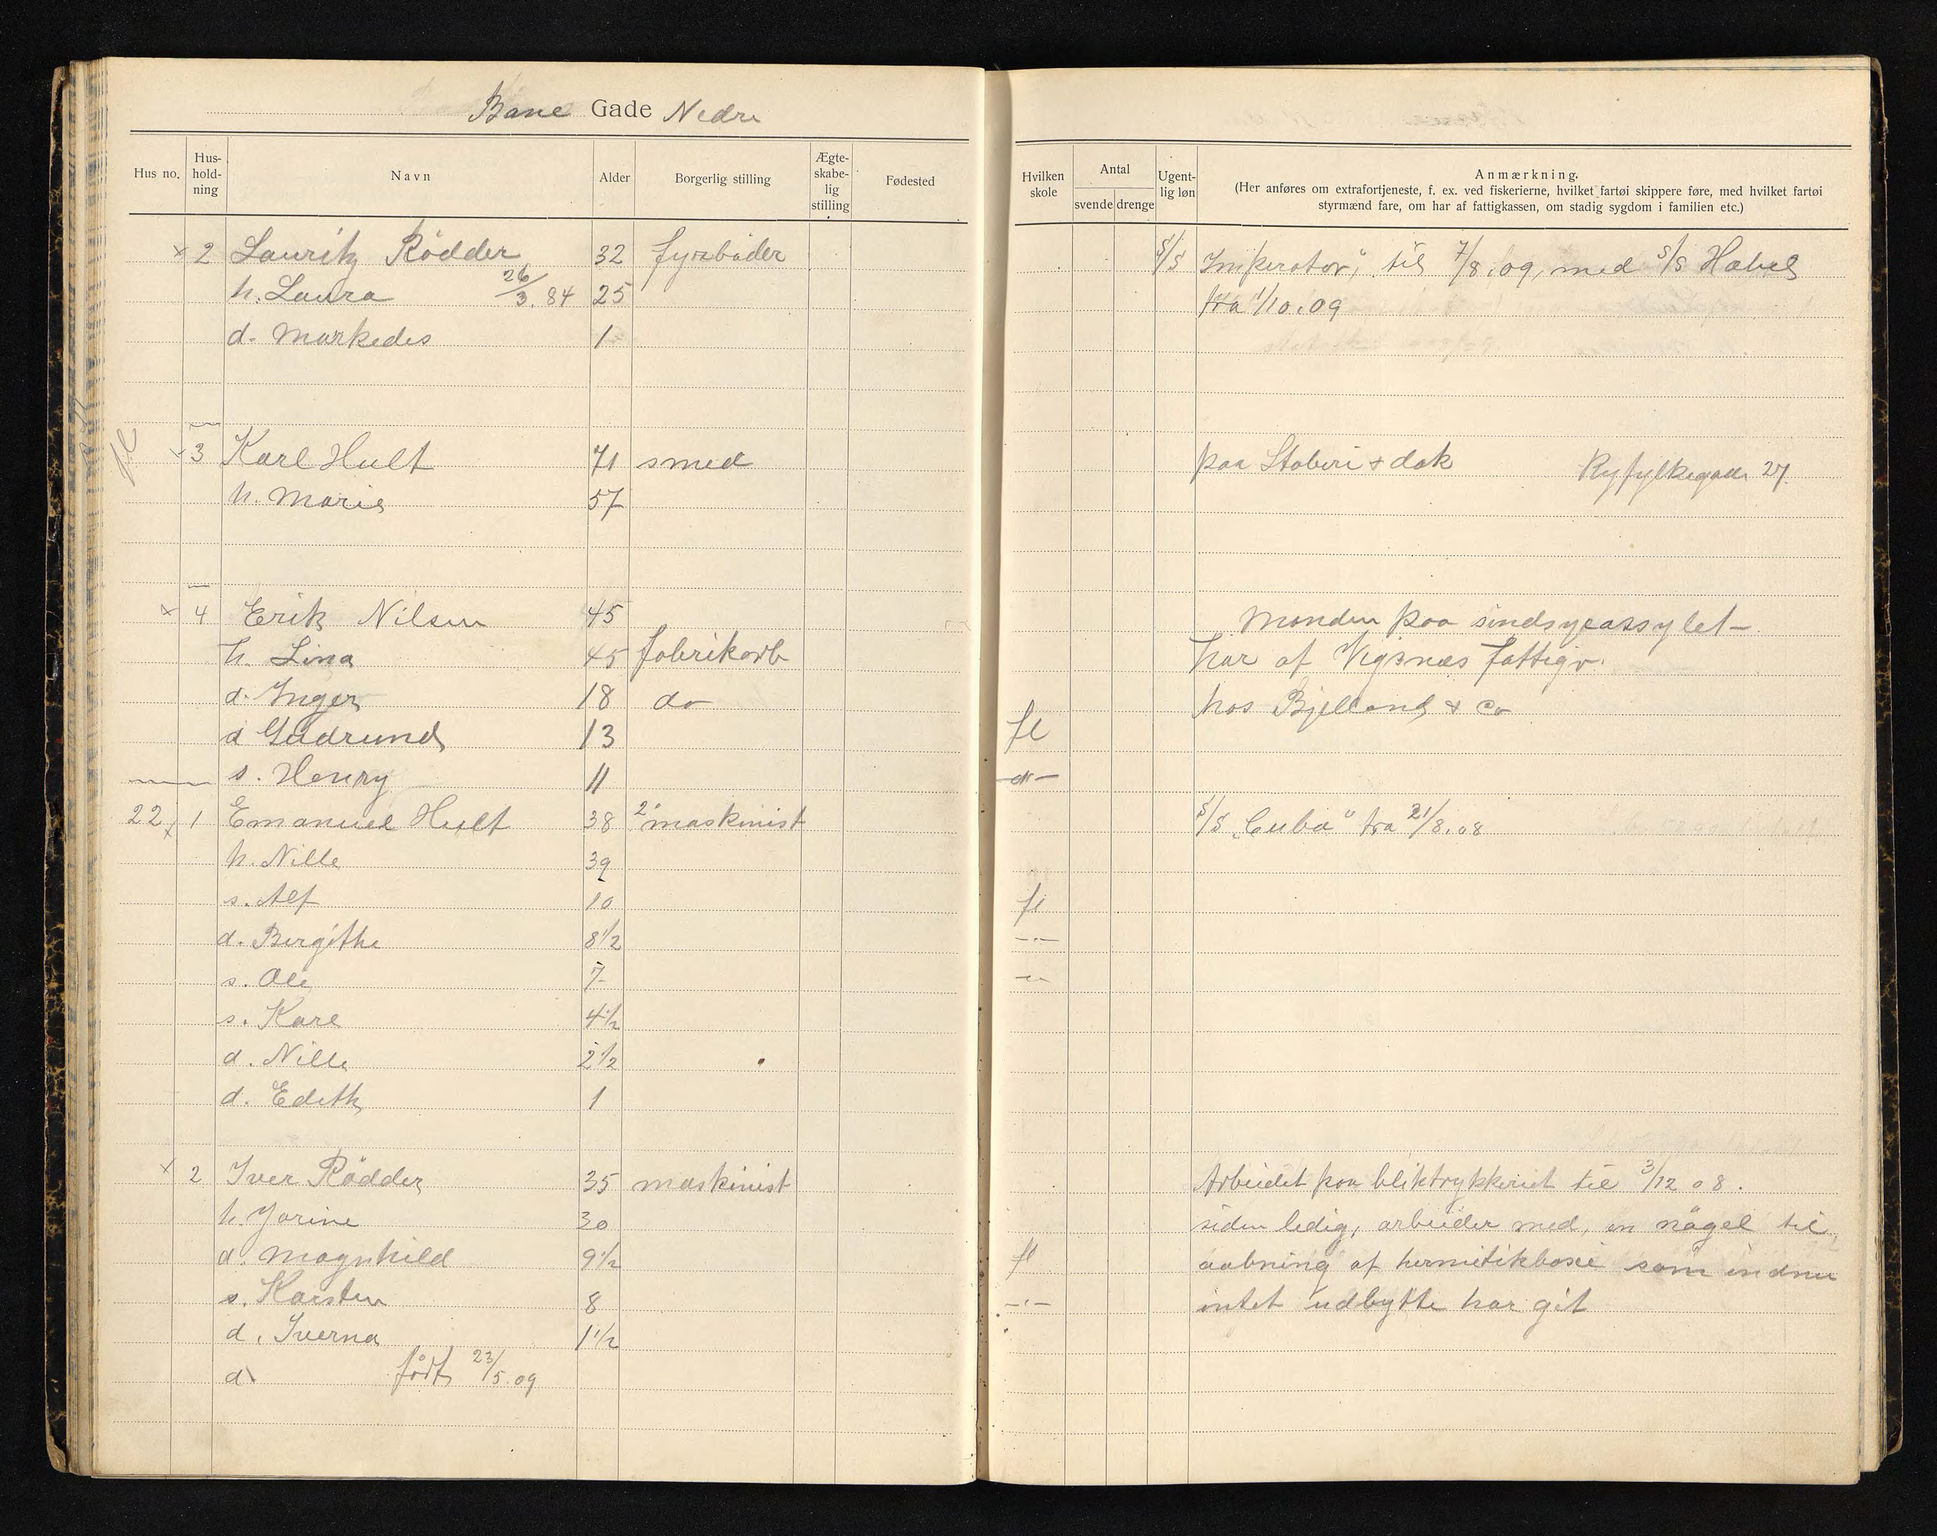 Bane Gade Nedre
Hus no. Hus-hold-ning Navn Alder Borgerlig stilling Ægte-skabe-lig stilling Fødested
Hvilken skole Antal svende drenge Ugent-lig løn Anmærkning.
(Her anføres om extrafortjeneste, f. ex. ved fiskerierne, hvilket fartøi skippere føre, med hvilket fartøi
styrmænd fare, om har af fattigkassen, om stadig sygdom i familien etc.)
× 2 Lauritz Rödder 32 fyrböder S/S Imperator" til 7/8.09, med S/S
h. Laura 26/3.84 25 fra 1/10.09
d. Markedes 1
fl
3 Karl Hult 71 smed paa Støberi & dok Ryfylkegade 27
h. Marie 57
× 4 Erik Nilsen 45 Manden paa sindsygeassylet
h. Lina 45 fabrikarb har af Vigsnæs fattigv.
d. Inger 18 do hos Bjelland & Co
d Gudrund 13 fl
s. Henry 11 -"-
22 × 1 Emanuel Hult 38 2' maskinist S/S „Cuba" fra 21/8.08
h. Nille 39
s. Alf 10 fl
d. Bergithe 8 1/2 -"-
s. Ole 7 -"-
s. Karl 4 1/2
d. Nille 2 1/2
d. Edith 1
× 2 Iver Rödder 35 maskinist Arbeidet paa bliktrykkeriet til 3/12 08.
h. Jorine 30 siden ledig, arbeider med, en nögel til
d. Magnhild 9 1/2 fl aabning af hermetikboxe som endnu
s. Karsten 8 -"- intet udbytte har git
d. Iverna 1 1/2
d. født 23/5.09